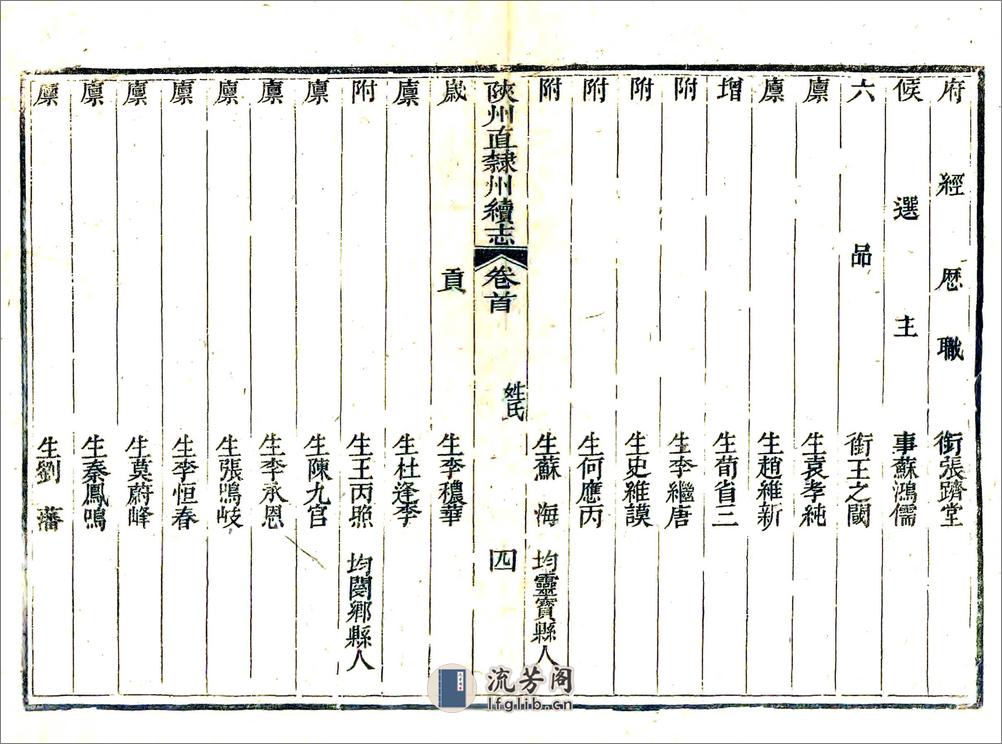 府經歷職銜張躋堂
候選主事蘇鴻儒
六品銜王之閿
廩生袁孝純
廩生趙維新
增生荀省三
附生李繼唐
附生史維謨
附生何應丙
附生蘇海 均靈寶縣人
陝州直隸州續志 卷首 姓氏 四
歲貢生李穠華
廩生杜逢季
附生王丙照 均閿鄉縣人
廩生陳九官
廩生李承恩
廩生張鳴岐
廩生李恒春
廩生莫蔚峰
廩生秦鳳鳴
廩生劉藩
流芳阁
lfglib.cn